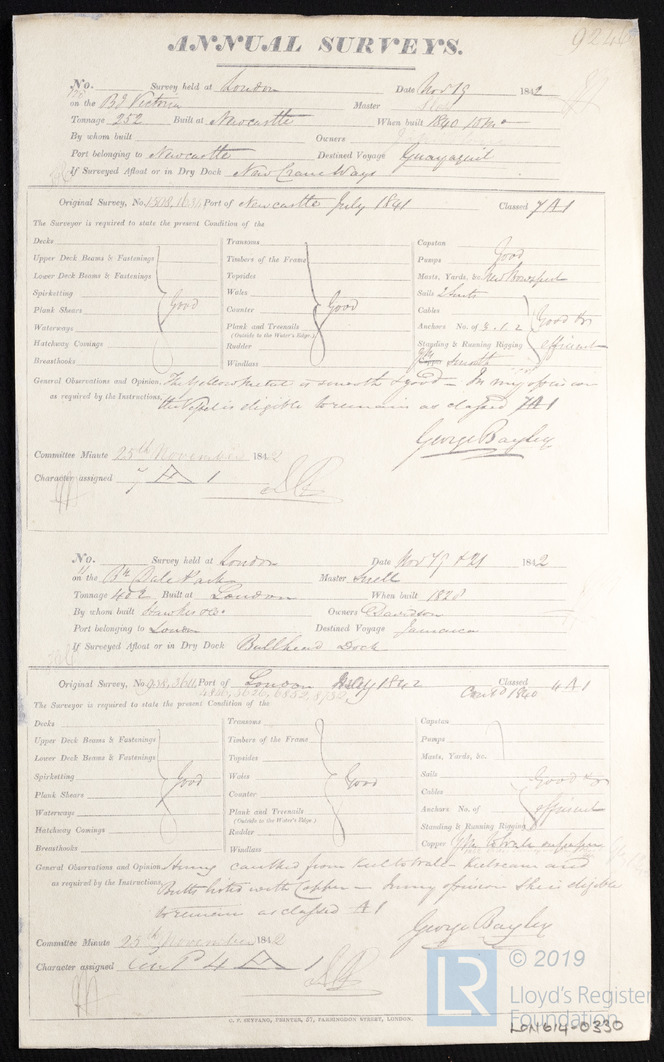 ANNUAL SURVEYS.
9246
No. Survey held at London Date Nov 19 1842
on the Bg Victoria Master
Tonnage 252 Built at Newcastle When built 1840 10 mo
By whom built Owners
Port belonging to Newcastle Destined Voyage Guayaquil
If Surveyed Afloat or in Dry Dock New Crane Ways
Original Survey, No. Port of Newcastle July 1841 Classed 7 A1
The Surveyor is required to state the present Condition of the
Decks Transoms Capstan
Upper Deck Beams & Fastenings Timbers of the Frame Pumps Good
Lower Deck Beams & Fastenings Topsides Masts, Yards, &c. New Bowsprit
Spirketting Wales Sails 2 Suits
Plank Shears Good Counter Good Cables Good &
Waterways Plank and Treenails Anchors No. of 3.1.2 efficient
(Outside to the Water's Edge.)
Hatchway Comings Rudder Standing & Running Rigging
Breasthooks Windlass
General Observations and Opinion The Yellow Metal is smooth & good – In my opinion
as required by the Instructions, the Vessel is eligible to remain as classed 7 A1
George Bayley
Committee Minute 25th November 1842
Character assigned 7 A 1
No. Survey held at London Date Nov 19 & 21 1842
on the Bk Dale Park Master Snell
Tonnage 402 Built at London When built 1828
By whom built Owners Davidson
Port belonging to London Destined Voyage Jamaica
If Surveyed Afloat or in Dry Dock Bullhead Dock
Original Survey, No. Port of London July 1842 Classed 4 A1
Contd 1840
The Surveyor is required to state the present Condition of the
Decks Transoms Capstan
Upper Deck Beams & Fastenings Timbers of the Frame Pumps
Lower Deck Beams & Fastenings Topsides Masts, Yards, &c.
Spirketting Good Wales Good Sails Good &
Plank Shears Counter Cables
Waterways Plank and Treenails Anchors No. of efficient
(Outside to the Water's Edge.)
Hatchway Comings Rudder Standing & Running Rigging
Breasthooks Windlass Copper
General Observations and Opinion caulked from Keel to Wales – Keelseam and
as required by the Instructions, Butts with Copper – In my opinion she is eligible
to remain as classed A1
George Bayley
Committee Minute 25th November 1842
Character assigned Contd 4 A 1
G. F. SEYFANG, PRINTER, 57, FARRINGDON STREET, LONDON.
LR
© 2019
Lloyd's Register
Foundation
LON614-0330